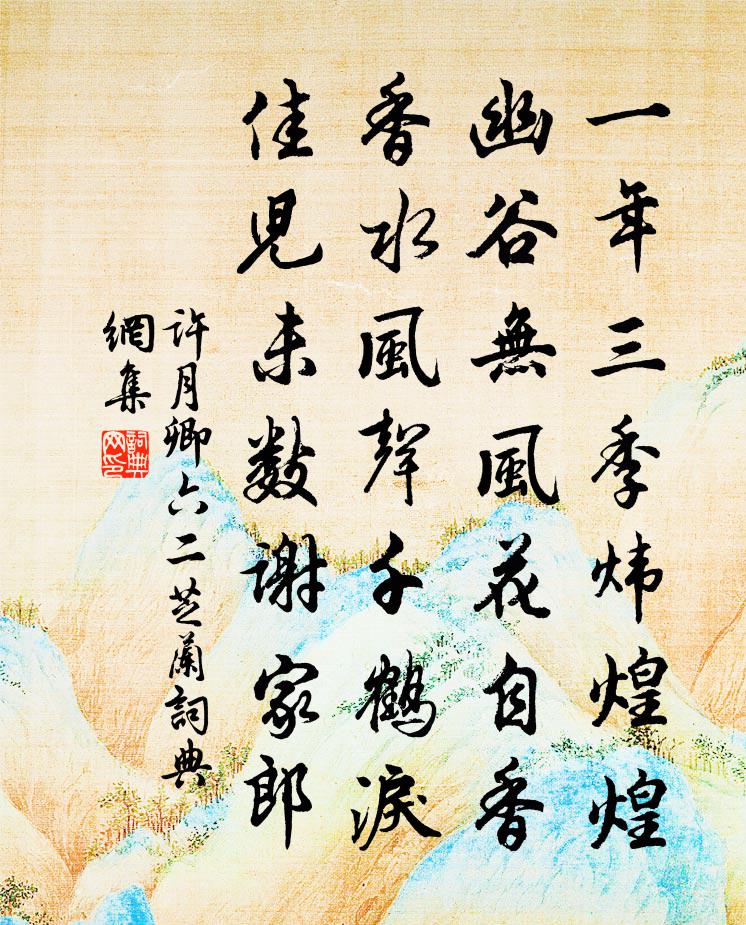 一年三秀炜煌煌
幽谷無風花自香
香水風聲千鶴淚
佳兒未数謝家郎
許月卿六二芝蘭詞典
網集
詞典
网印